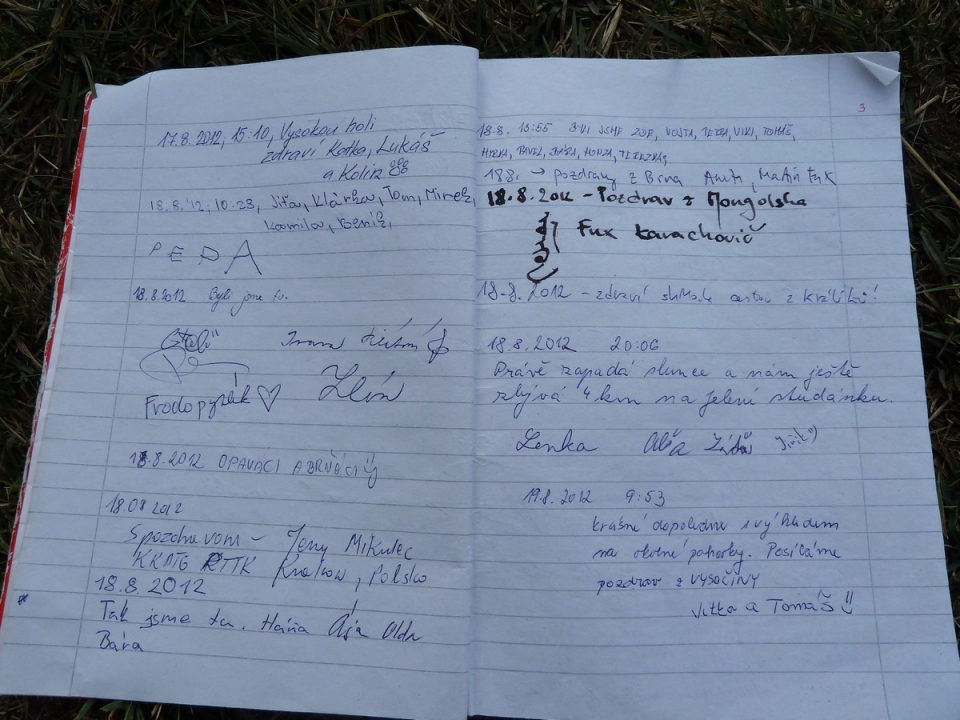 17.8.2012, 15:10, Vysokou holi
zdraví Katka, Lukáš
a Kolin
18.8.'12, 10:23, Jiťa, Klárka, Tom, Mirek,
Kamila,
PEDA
18.8.2012 Byli jsme tu.
Ivana
Zlín
Frodopysek ♡
18.8.2012 OPAVACI A BRŇÁCI
18.08 2012
Spozdravom – Jerzy Mikulec
PTTK Krakow, Polsko
18.8.2012
Tak jsme tu. Háňa Ája Olda
Bára
3
18.8. 13:55 BYLI JSME ZDE, VOJTA, PETRA, VIKI, TOMÁŠ,
PAVEL, HONZA, TEREZKA,
18.8. → pozdravy z Brna Martin Fuk
18.8.2012 – Pozdrav z Mongolska
Fux Karachovič
18.8.2012 – zdraví z Králíků!
18.8.2012 20:06
Právě zapadá slunce a nám ještě
zbývá 4 km na Jelení studánku.
Lenka Jiřík
19.8.2012 9:53
krásné dopoledne s výhledem
na okolné pohorky. Posíláme
pozdrav z VYSOČINY
Jitka a Tomáš